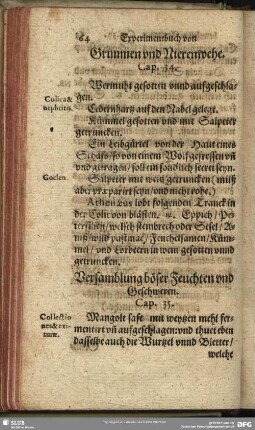 64 Experimentbuch von
Grimmen vnd Nierenwehe.
Cap. 34.
Wermuht gesotten vnnd auffgeschla-
gen.
Colica &
nephritis.
Cedernhartz auff den Nabel gelegt.
Kümmel gesotten vnd mit Salpeter
getruncken.
Ein Leibgürtel von der Haut eines
Schafs / so von einem Wolf gefressen vñ
vnd getragen / soll ein sondlich secret seyn.
Salpeter mit wein getruncken / muß
aber præparirt seyn / vnd nicht rohe.)
lobt folgenden Tranck in
der Colic von blästen. Eppich / Pe-
tersilien / welsch steinbrech oder Sesel /
pastinac / Fenchelsamen / Küm-
mel / vnd Lorbeern in wein gesotten vnnd
getruncken.
Versamblung böser Feuchten vnd
Geschweren.
Cap. 35.
Collectio
Mangolt safft mit weytzen mehl fer-
mentiert vñ auffgeschlagen: vnd thuet eben
dasselbe auch die Wurtzel vnnd Bletter /
welche